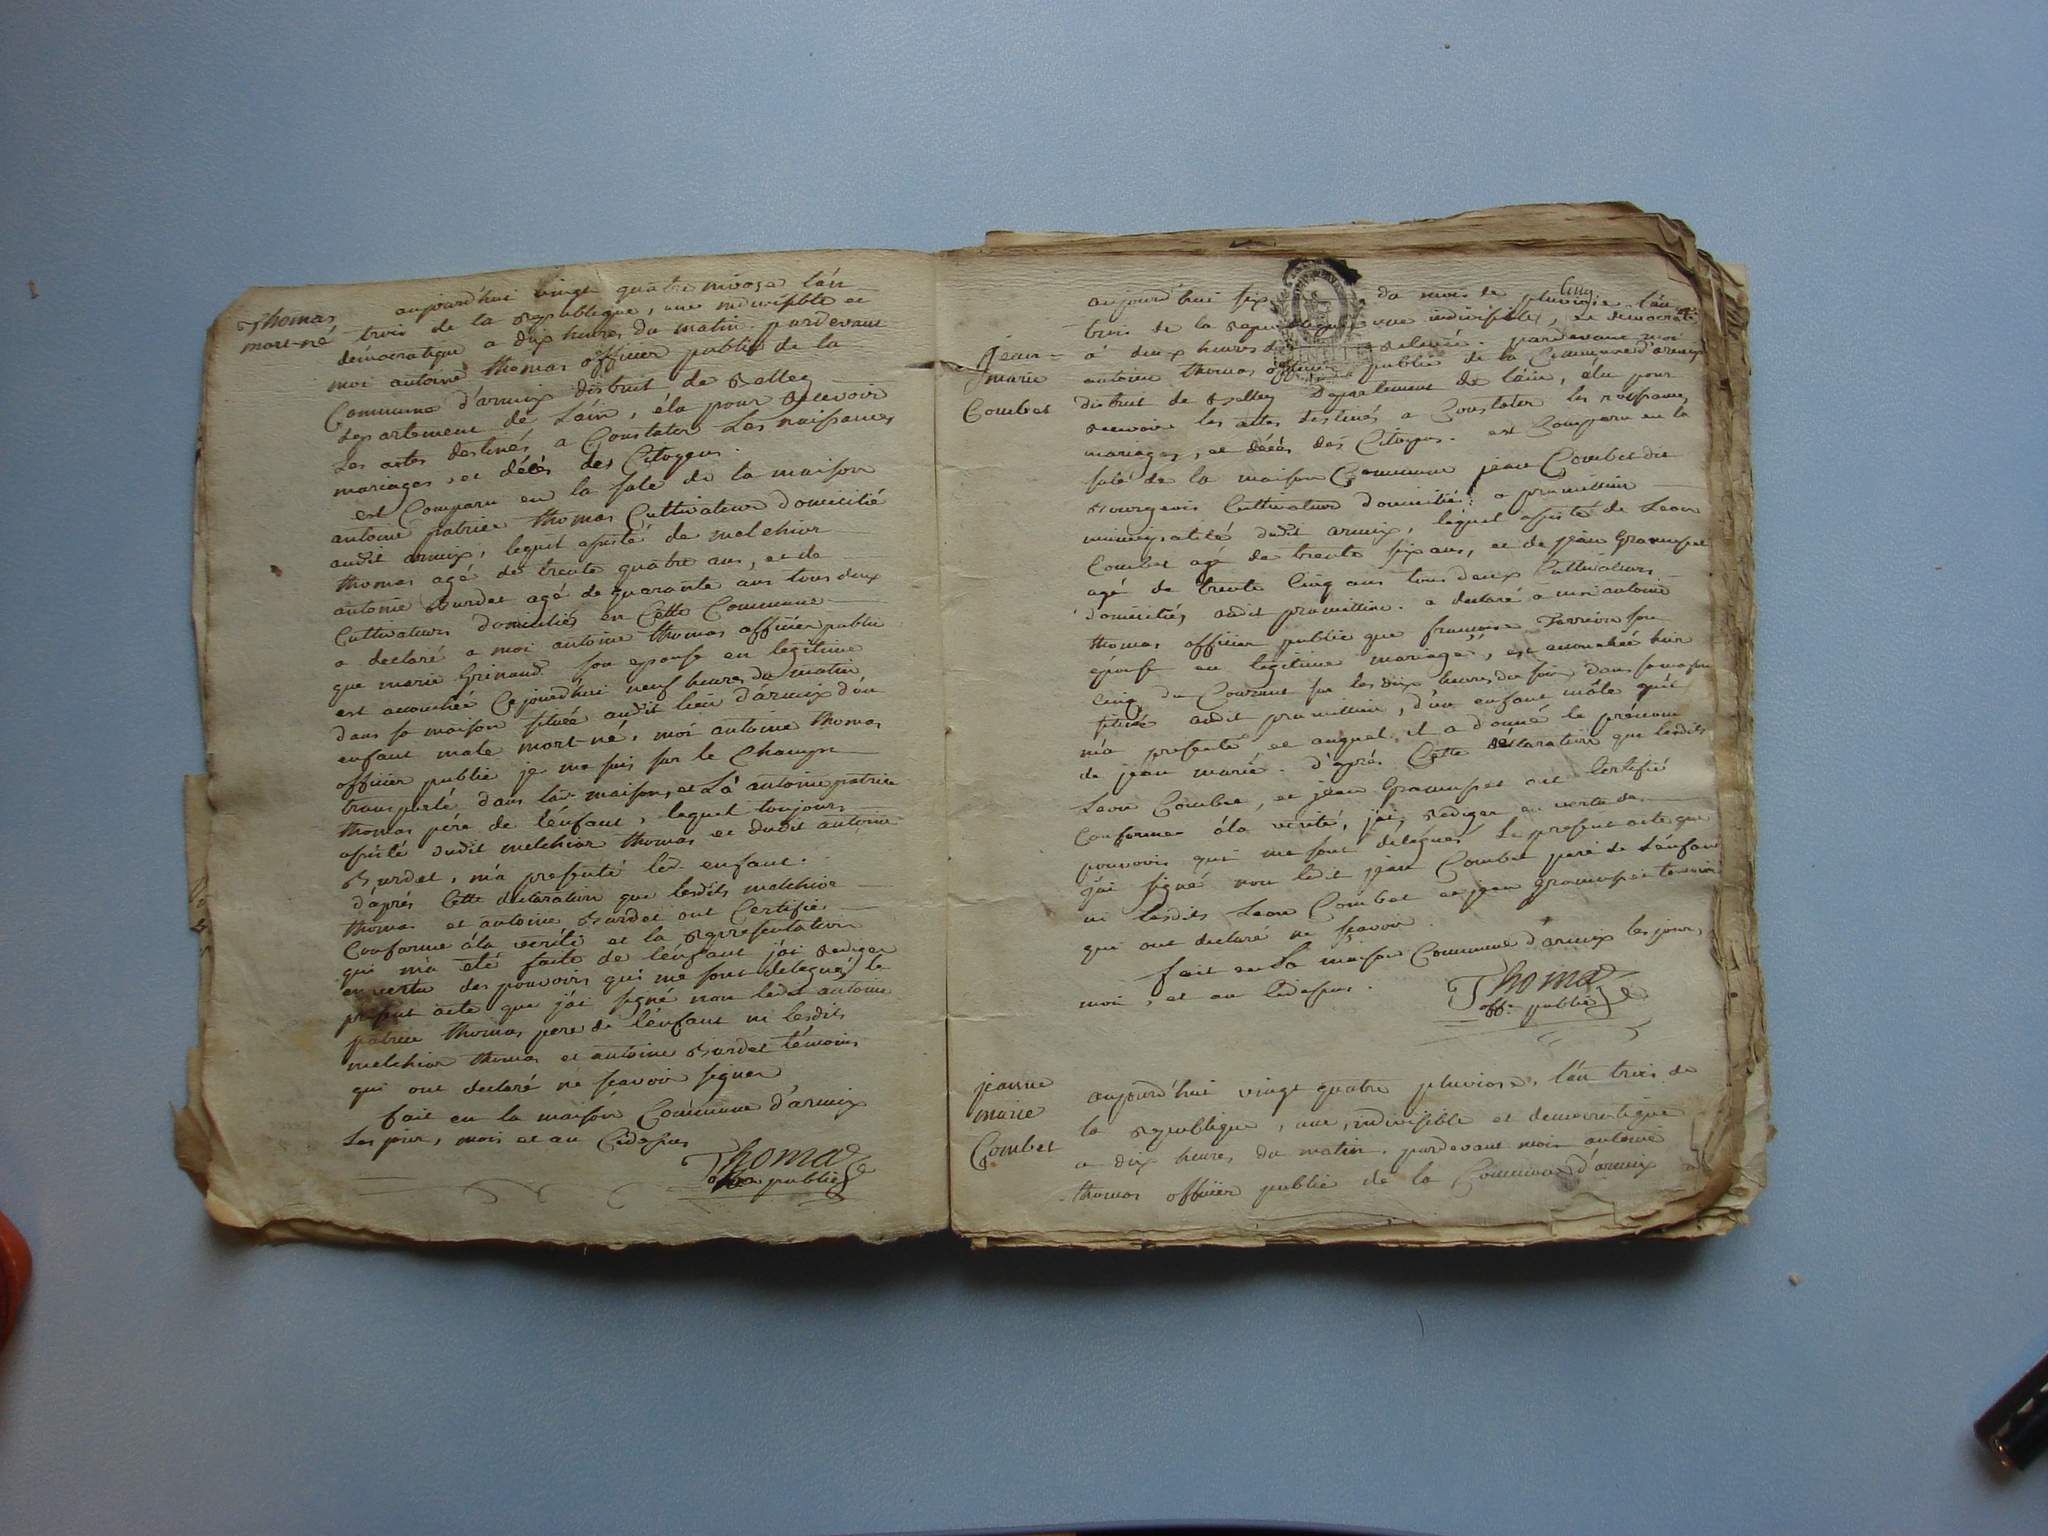 Thomas
mort-né
aujourd'hui vingt quatre nivose l'an
trois de la Republique, une indivisible et
democratique a dix heures du matin. pardevant
moi antoine thomas officier public de la
Commune d'armix district de Belley
departement de L'ain, élu pour Recevoir
Les actes destinés a Constater Les naissances
mariages, et décès des Citoyens.
est Comparu en la sale de la maison
antoine patrice thomas Cultivateur domicilié
audit armix, lequel assisté de melchior
thomas agé de trente quatre ans, et de
antoine Burdet agé de quarante ans tous deux
Cultivateurs domiciliés en Cette Commune
a declaré a moi antoine thomas officier public
que marie Grinand son epouse en legitime
est accouchée Cejourd'hui neuf heures du matin
dans sa maison située audit lieu d'armix d'un
enfant male mort-né, moi antoine thomas
officier public je me suis sur le Champ
transporté dans la maison, et Là antoine patrice
thomas pére de l'enfant, lequel toujours
assisté dudit melchior thomas et dudit antoine
Burdet, m'a presenté led. enfant.
d'aprés Cette declaration que lesdits melchior
thomas et antoine Burdet ont Certifiée
Conforme à la verité et la Representation
qui m'a eté faite de l'enfant j'ai Rediger
en vertu des pouvoirs qui me sont delegués le
présent acte que j'ai signé non ledit antoine
patrice thomas pere de l'enfant ni lesdits
melchior thomas et antoine Burdet témoins
qui ont declaré ne sçavoir signer
fait en la maison Commune d'armix
Les jour, mois et an Cidessus
Thomas
public
Jean
marie
Combet
aujourd'hui six du mois de pluviose l'an
trois de la Republique une indivisible, et democratique
à deux heures de relevée. pardevant moi
antoine thomas officier public de la Commune d'armix
district de Belley Departement de l'ain, elu pour
Recevoir les actes destinés a Constater les naissances
mariages, et décès des Citoyens. est Comparu en la
sale de la maison Commune jean Combet dit
Bourgeois Cultivateur domicilié a premillieu
municipalité dudit armix, lequel assisté de Leon
Combet agé de trente six ans, et de jean
agé de trente Cinq ans tous deux Cultivateurs
domiciliés audit premillieu. a declaré a moi antoine
thomas officier public que françoise son
épouse en legitime mariage, est accouchée hier
cinq du Courant sur les dix heures du soir dans sa maison
située audit premillieu, d'un enfant mâle qu'il
m'a presenté et auquel il a donné le prénom
de jean marie. d'aprés Cette déclaration que lesdits
Leon Combet, et jean ont Certifié
Conforme à la verité, j'ai Rediger en vertu des
pouvoirs qui me sont délégués Le present acte que
j'ai signé non ledit jean Combet pere de L'enfant
ni lesdits Leon Combet et jean temoins
qui ont declaré ne sçavoir
fait en La maison Commune d'armix les jour,
mois, et an Cidessus.
Thomas
offr. public
jeanne
marie
Combet
aujourd'hui vingt quatre pluviose, l'an trois de
la Republique, une, indivisible et democratique
a dix heures du matin. pardevant moi antoine
thomas officier public de la Commune d'armix